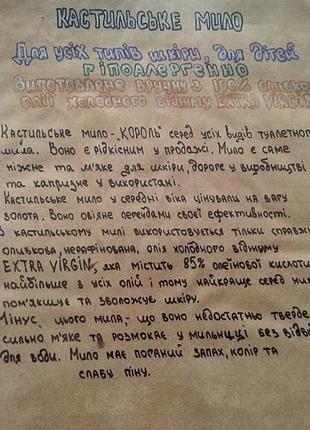 КАСТИЛЬСЬКЕ МИЛО
Для усіх типів шкіри, для дітей
ГІПОАЛЕРГЕННО
Виготовлене вручну з 100% оливко
олії холодного віджиму EXTRA VIRGIN
Кастильське мило-"КОРОЛЬ" серед усіх видів туалетного
мила. Воно є рідкісним у продажі. Мило є саме
ніжне та м'яке для шкіри, дороге у виробництві
та капризне у використані.
Кастильське мило у середні віка цінували на вагу
золота. Воно овіяне легендами своєї ефективності.
В кастильському милі використовується тільки справжн
оливкова, нерафінована, олія холодного віджиму
EXTRA VIRGIN, яка містить 85% олеїнової кислоти
найбільше з усіх олій і тому найкраще серед них
пом'якшує та зволожує шкіру.
Мінус цього мила- що воно недостатньо тверде
сильно м'яке та розмокає у мильниці без відво
для води. Мило має поганий запах, колір та
слабу піну.